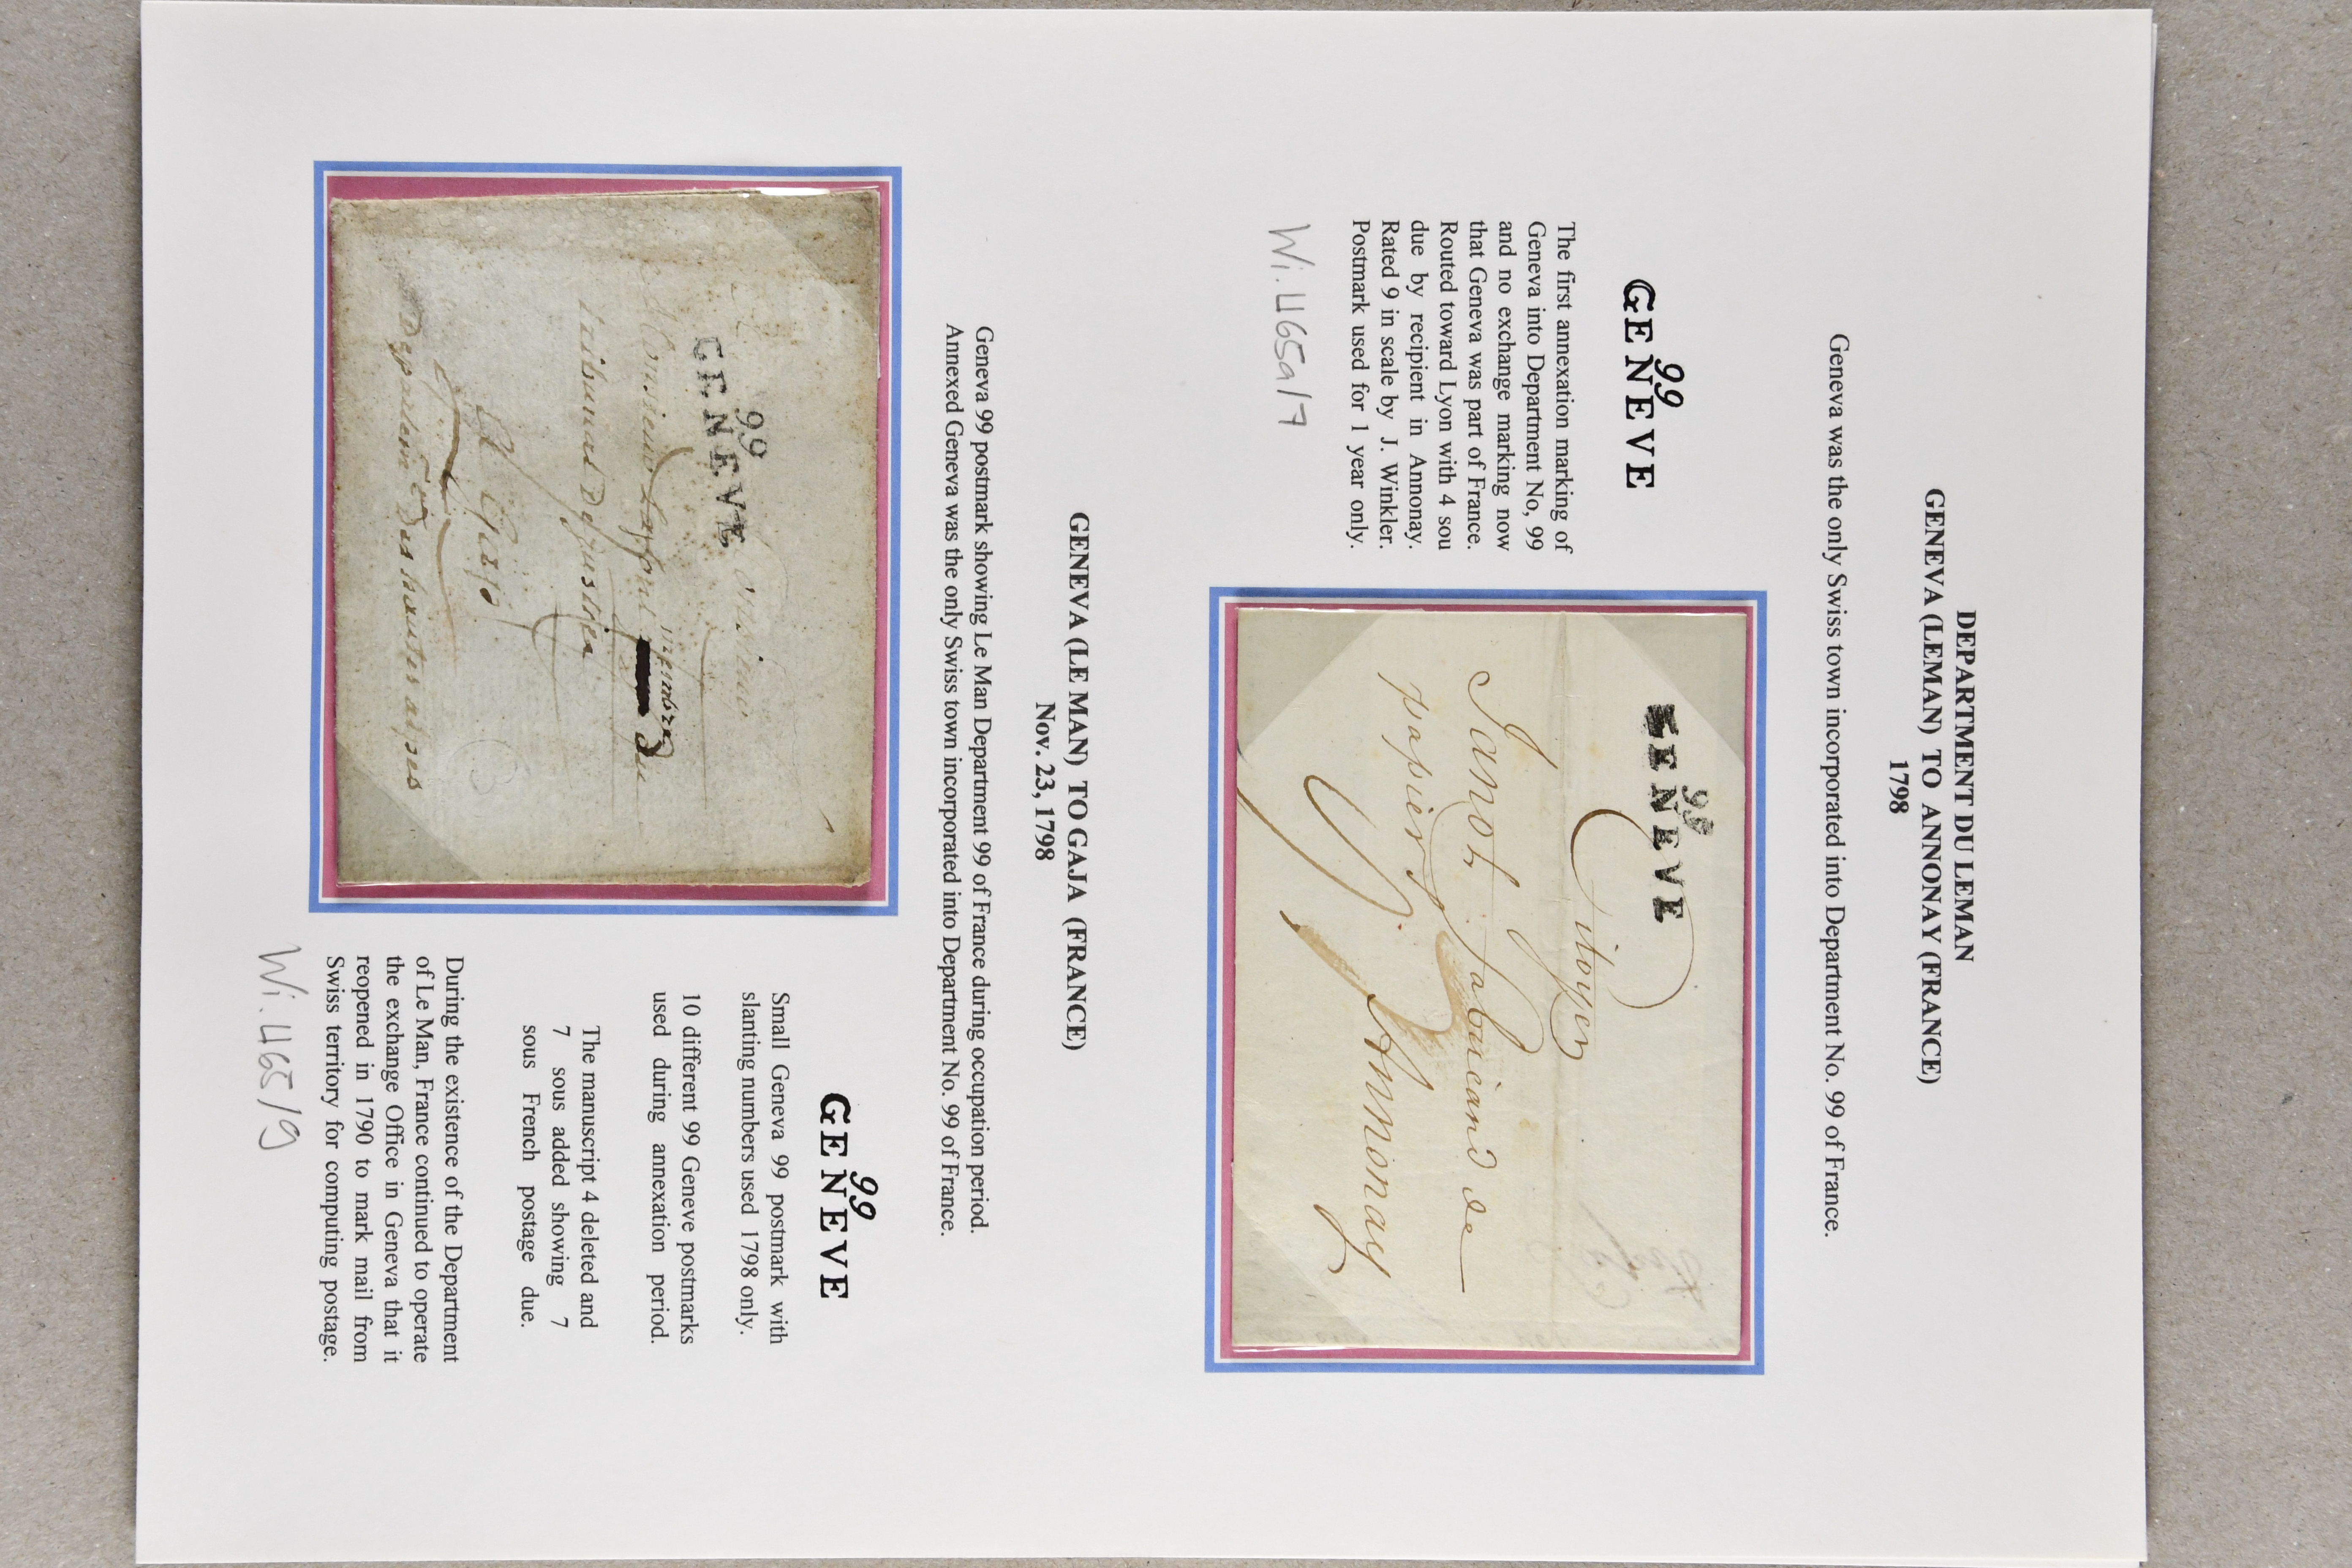 DEPARTMENT DU LEMAN
GENEVA (LEMAN) TO ANNONAY (FRANCE)
1798
Geneva was the only Swiss town incorporated into Department No. 99 of France.
99
GENEVE
The first annexation marking of
Geneva into Department No, 99
and no exchange marking now
that Geneva was part of France.
Routed toward Lyon with 4 sou
due by recipient in Annonay.
Rated 9 in scale by J. Winkler.
Postmark used for 1 year only.
Wi. 465a/7
99
GENEVE
Citoyen
Janot fabricand de
papier
Annonay
GENEVA (LE MAN) TO GAJA (FRANCE)
Nov. 23, 1798
Geneva 99 postmark showing Le Man Department 99 of France during occupation period.
Annexed Geneva was the only Swiss town incorporated into Department No. 99 of France.
99
GENEVE
Monsieur
membre du
A
Des hautes alpes
99
GENEVE
Small Geneva 99 postmark with
slanting numbers used 1798 only.
10 different 99 Geneve postmarks
used during annexation period.
The manuscript 4 deleted and
7 sous added showing 7
sous French postage due.
During the existence of the Department
of Le Man, France continued to operate
the exchange Office in Geneva that it
reopened in 1790 to mark mail from
Swiss territory for computing postage.
Wi. 465/9